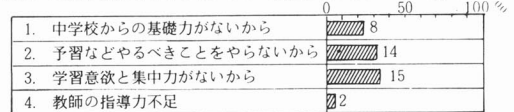 0 50 100 (%)
1. 中学校からの基礎力がないから 8
2. 予習などやるべきことをやらないから 14
3. 学習意欲と集中力がないから 15
4. 教師の指導力不足 2